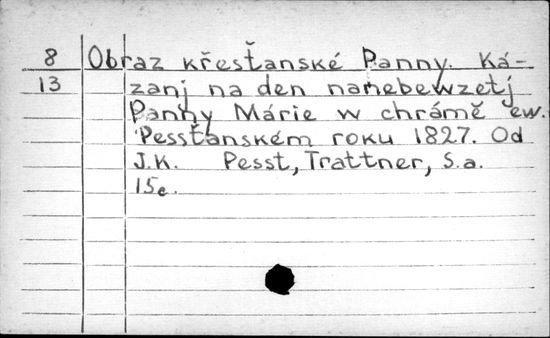 8 Obraz křesťanské Panny. Ká-
13 zanj na den nanebewzetj
Panny Márie w chrámě ew.
Pessťanském roku 1827. Od
J.K. Pesst, Trattner, s.a.
15e.